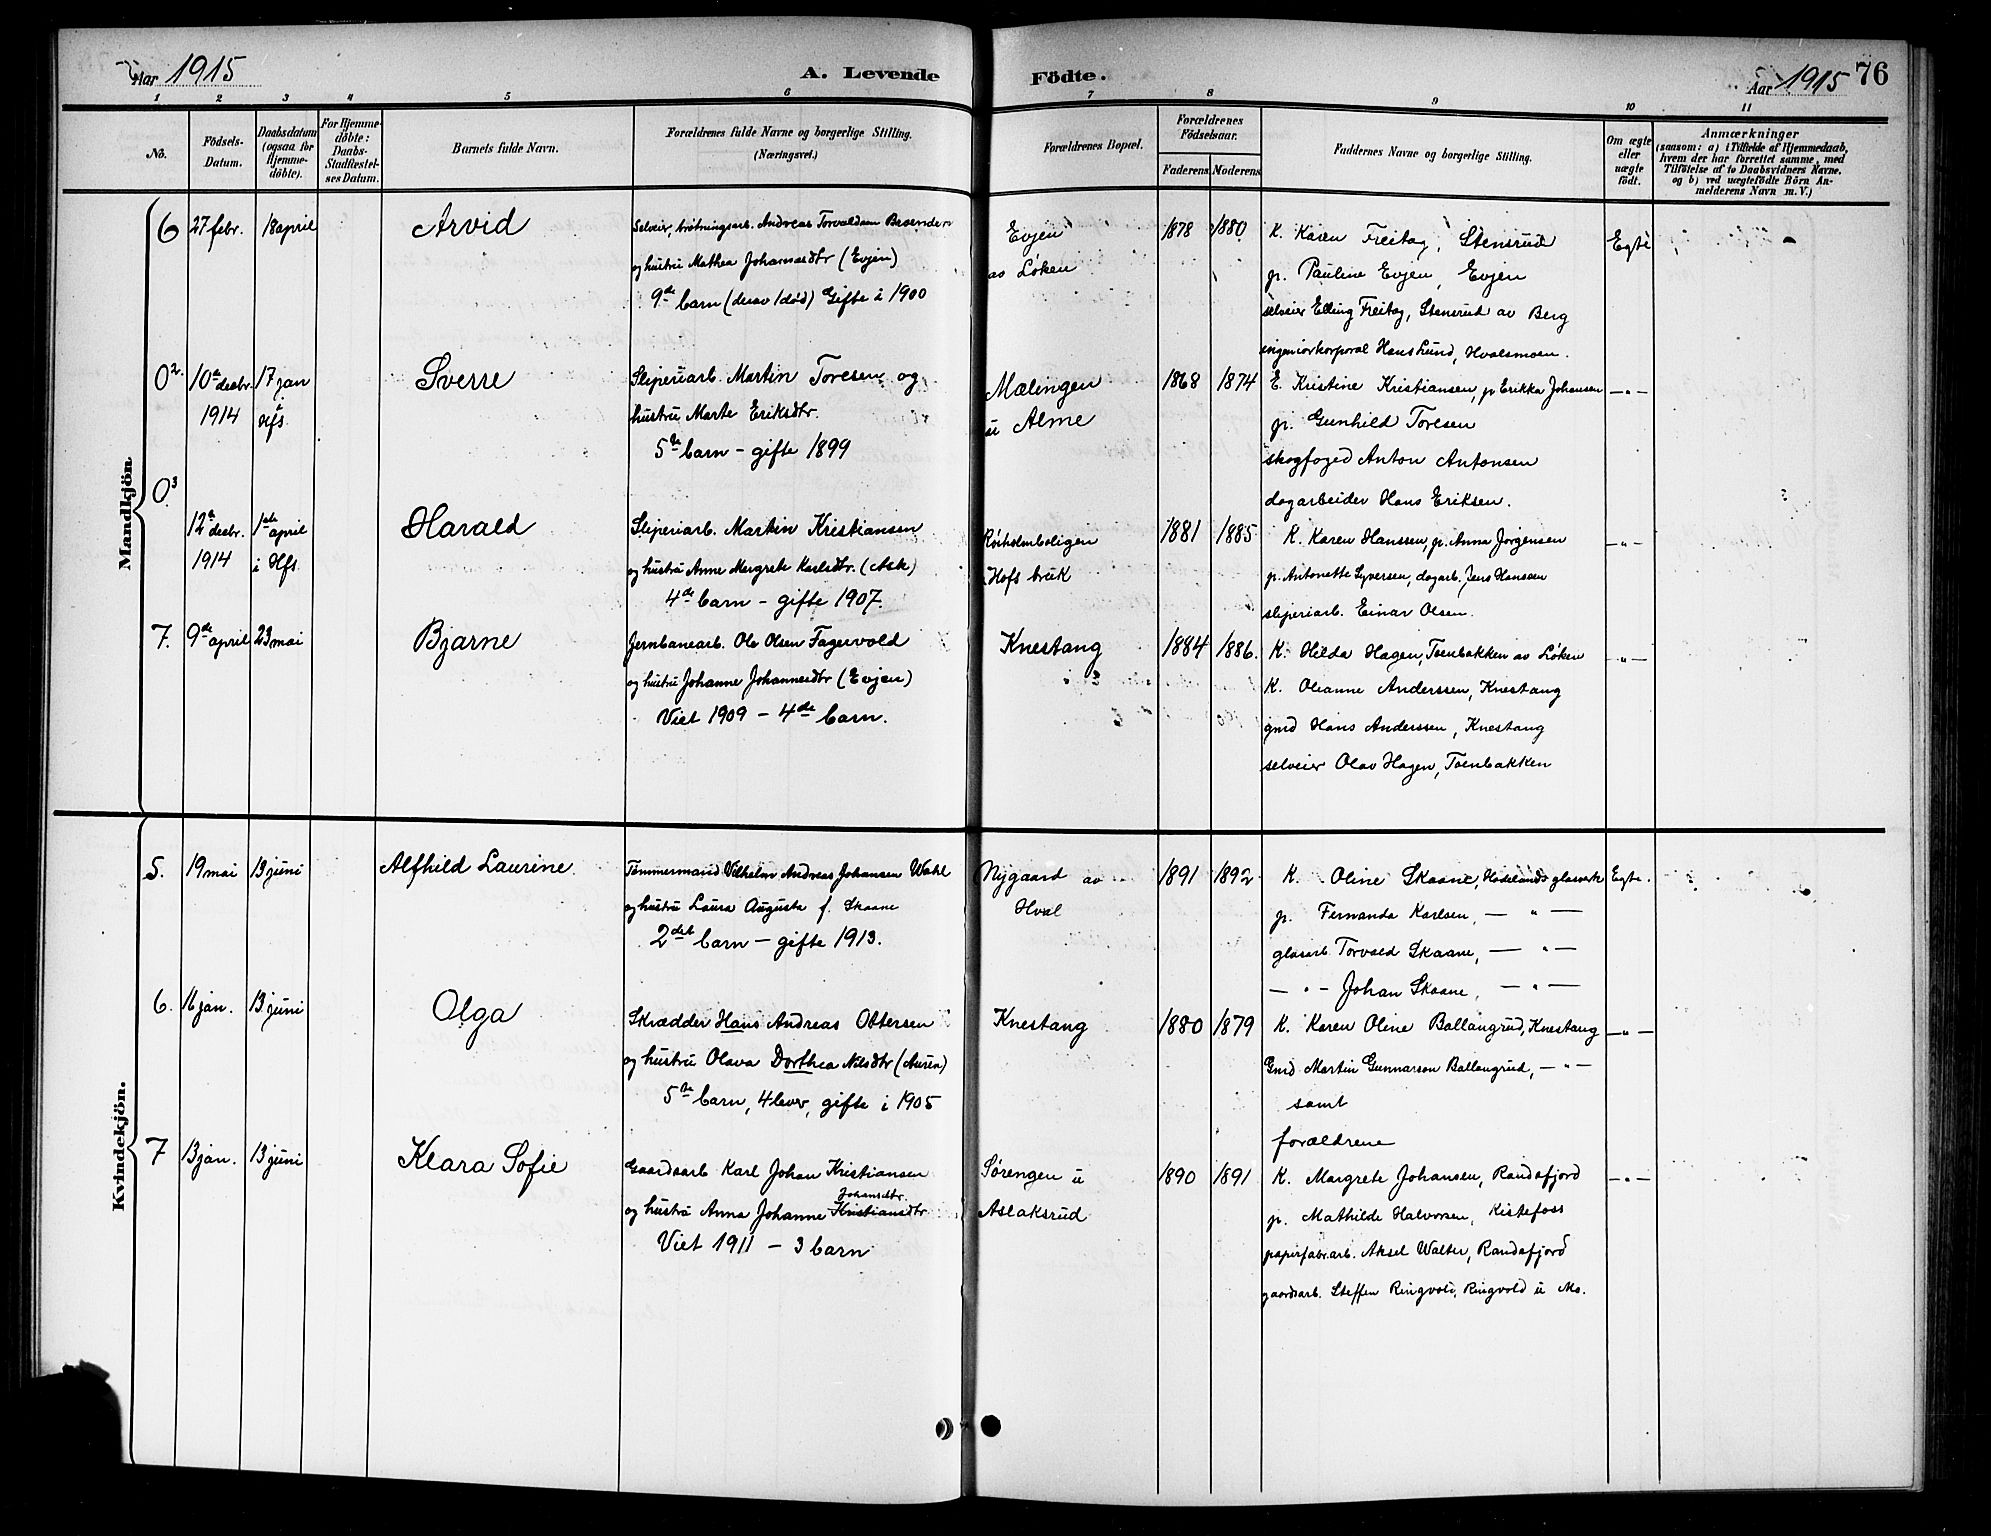 Aar 1915
A. Levende
Födte.
Aar 1915
76
1 2 3 4 5 6 7 8 9 10 11
No.
Födsels-
Datum.
Daabsdatum
(ogsaa for
Hjemme-
döbte).
For Hjemme-
döbte:
Daabs-
Stadfæstel-
ses Datum.
Barnets fulde Navn.
Forældrenes fulde Navne og borgerlige Stilling.
(Næringsvei.)
Forældrenes Bopæl.
Forældrenes
Födselsaar.
Faderens
Moderens
Faddernes Navne og borgerlige Stilling.
Om ægte
eller
uægte
födt.
Anmærkninger
(saasom: a) i Tilfælde af Hjemmedaab,
hvem der har forrettet samme, med
Tilföielse af to Daabsvidners Navne.
og b) ved uægtefödte Börn An-
melderens Navn m. V.)
Mandkjön
6 27 febr. 18 april
Arvid
Selveier, Andreas Torvaldsen Braenden
og hustru Mathea Johannesdtr (Evjen)
9de barn (derav 1 død) Gifte i 1900
Evjen
av Løken
1878 1880
K. Karen Freitag, Stensrud
p. Pauline Evjen, Evjen
selveier Elling Freitag, Stensrud av Berg
ingeniørkorporal Hans Lund, Hvalsmoen.
Egte
O2. 10de decbr. 17 jan
1914 i Hfs.
Sverre
Sliperiarb. Martin Toresen og
hustru Marte Eriksdtr.
5te barn - gifte 1899
Mælingen
u Alme
1868 1874
E. Kristine Kristiansen, p Erikka Johansen
p. Gunhild Toresen
skogfoged Anton Antonsen
dagarbeider Hans Eriksen.
-"-
O3
12te decbr. 1ste april
1914 i Hfs.
Harald
Sliperiarb. Martin Kristiansen
og hustru Anne Margrete Karlsdtr. (Ask)
4de barn - gifte 1907.
Røiholmboligen
Hofs bruk
1881 1885
K. Karen Hanssen, p. Anna Jørgensen
p. Antonette Syversen, dagarb. Jens Hansen
sliperiarb. Einar Olsen.
-"-
7. 9de april 23 mai
Bjarne
Jernbanearb. Ole Olsen Fagervold
og hustru Johanne Johannesdtr (Evjen)
Viet 1909 - 4de barn.
Knestang
1884 1886.
K. Hilda Hagen, Toenbakken av Løken
K. Oleanne Anderssen, Knestang
gmd Hans Anderssen, Knestang
selveier Olav Hagen, Toenbakken
-"-
Kvindekjön.
5. 19 mai 13 juni
Alfhild Laurine.
Tømmermand Vilhelm Andreas Johansen Wahl
og hustru Laura Augusta f. Skaane
2det barn - gifte 1913.
Nygaard av
Hval
1891 1892
K. Oline Skaane, Hadelands glasverk
p. Fernanda Karlsen, - " -
glasarb. Torvald Skaane, - " -
- " - Johan Skaane, - " -
Egte.
6. 11 jan. 13 juni
Olga
Skrædder Hans Andreas Ottersen
og hustru Olava Dorthea Nilsdtr (Auren)
5te barn, 4 lever, gifte i 1905
Knestang
1880 1879
K. Karen Oline Ballangrud, Knestang
Gmd Martin Gunnarson Ballangrud, - " -
samt
forældrene
-"-
7 13 jan. 13 juni
Klara Sofie
Gaardsarb Karl Johan Kristiansen
Johansdtr.
og hustru Anna Johanne Kristiansdtr
Viet 1911 - 3 barn
Sørengen u
Aslaksrud
1890 1891
K. Margrete Johansen, Randsfjord
p. Mathilde Halvorsen, Kistefoss
papirfabr.arb. Aksel Walter, Randsfjord
gaardsarb. Steffen Ringvold, Ringvold u Mo.
-"-